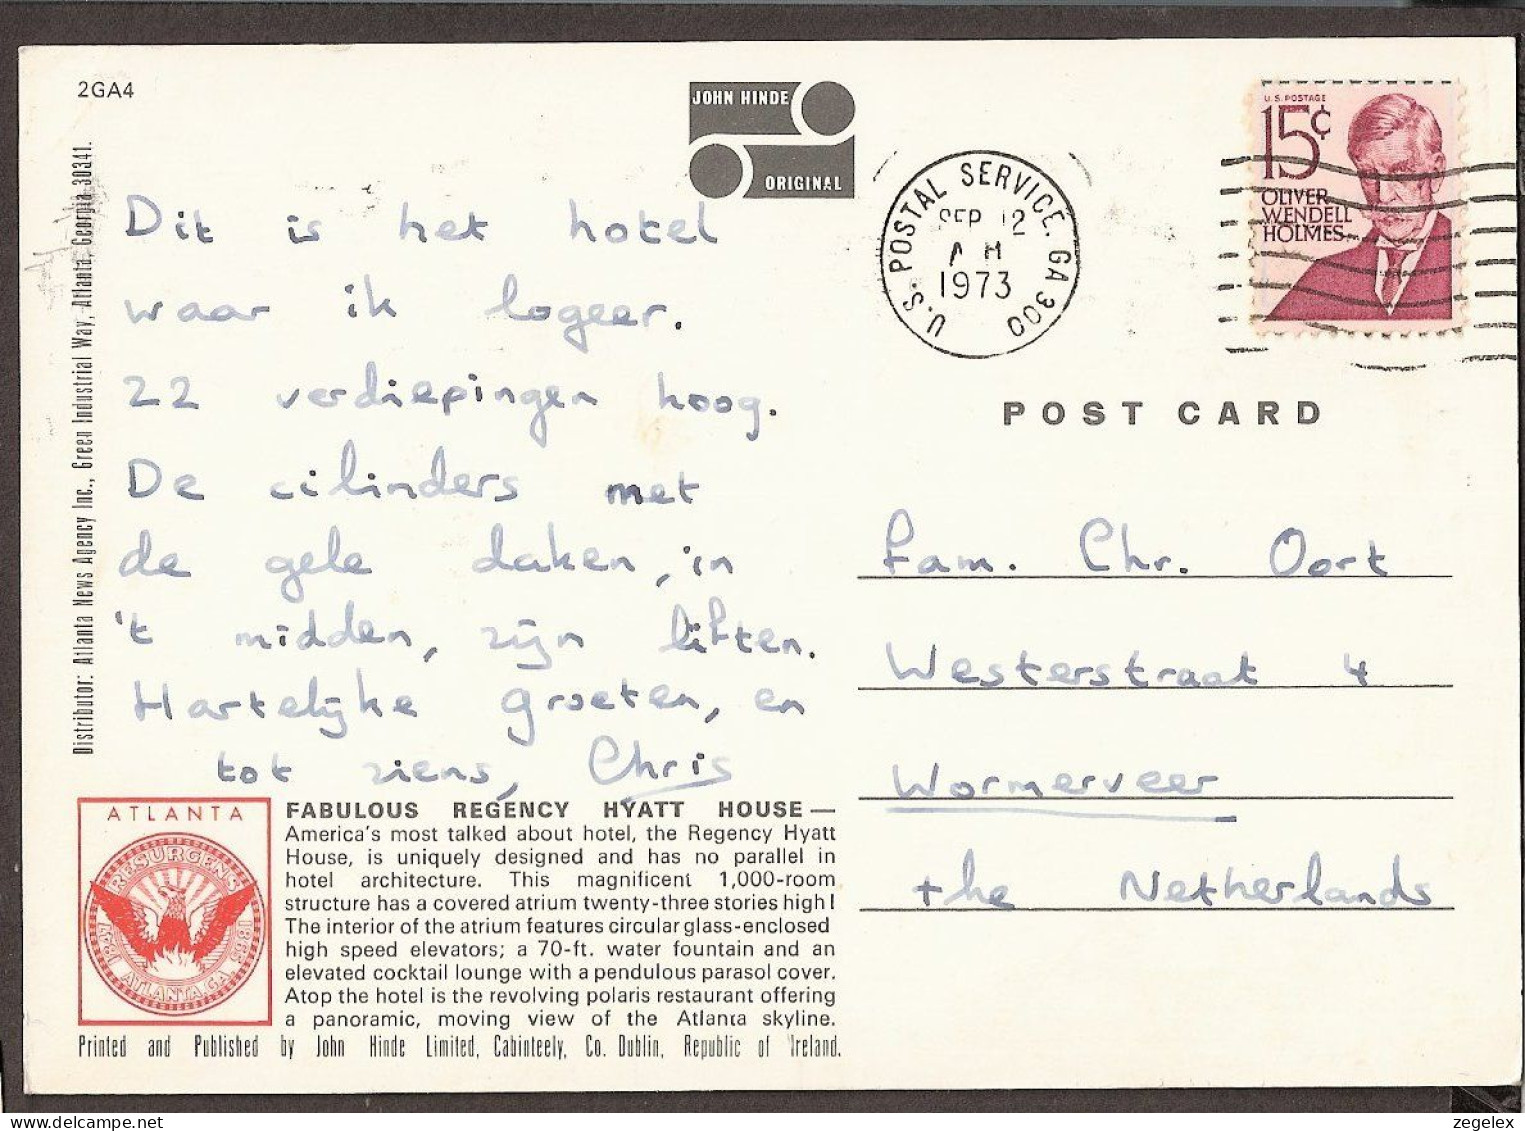 2GA4
JOHN HINDE
ORIGINAL
Distributor: Atlanta News Agency Inc., Green Industrial Way, Atlanta, Georgia 30341.
Dit is het hotel
waar ik logeer.
22 verdiepingen hoog.
De cilinders met
de gele daken, in
't midden, zijn liften.
Hartelijke groeten, en
tot ziens, Chris
U.S. POSTAL SERVICE, GA 300
SEP 12
AM
1973
U.S. POSTAGE
15¢
OLIVER
WENDELL
HOLMES
POST CARD
Fam. Chr. Oort
Westerstraat 4
Wormerveer
the Netherlands
ATLANTA
RESURGENS
1847 ATLANTA, GA. 1865
FABULOUS REGENCY HYATT HOUSE—
America's most talked about hotel, the Regency Hyatt
House, is uniquely designed and has no parallel in
hotel architecture. This magnificent 1,000-room
structure has a covered atrium twenty-three stories high!
The interior of the atrium features circular glass-enclosed
high speed elevators; a 70-ft. water fountain and an
elevated cocktail lounge with a pendulous parasol cover.
Atop the hotel is the revolving polaris restaurant offering
a panoramic, moving view of the Atlanta skyline.
Printed and Published by John Hinde Limited, Cabinteely, Co. Dublin, Republic of Ireland.
zegelex